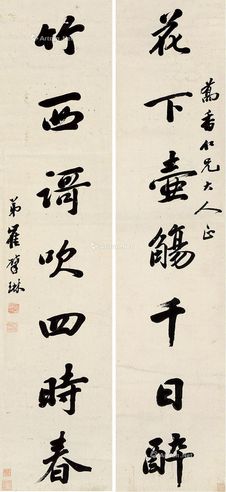 蕙香仁兄大人正
花下壺觴千日醉
竹西謌吹四時春
弟崔肇琳